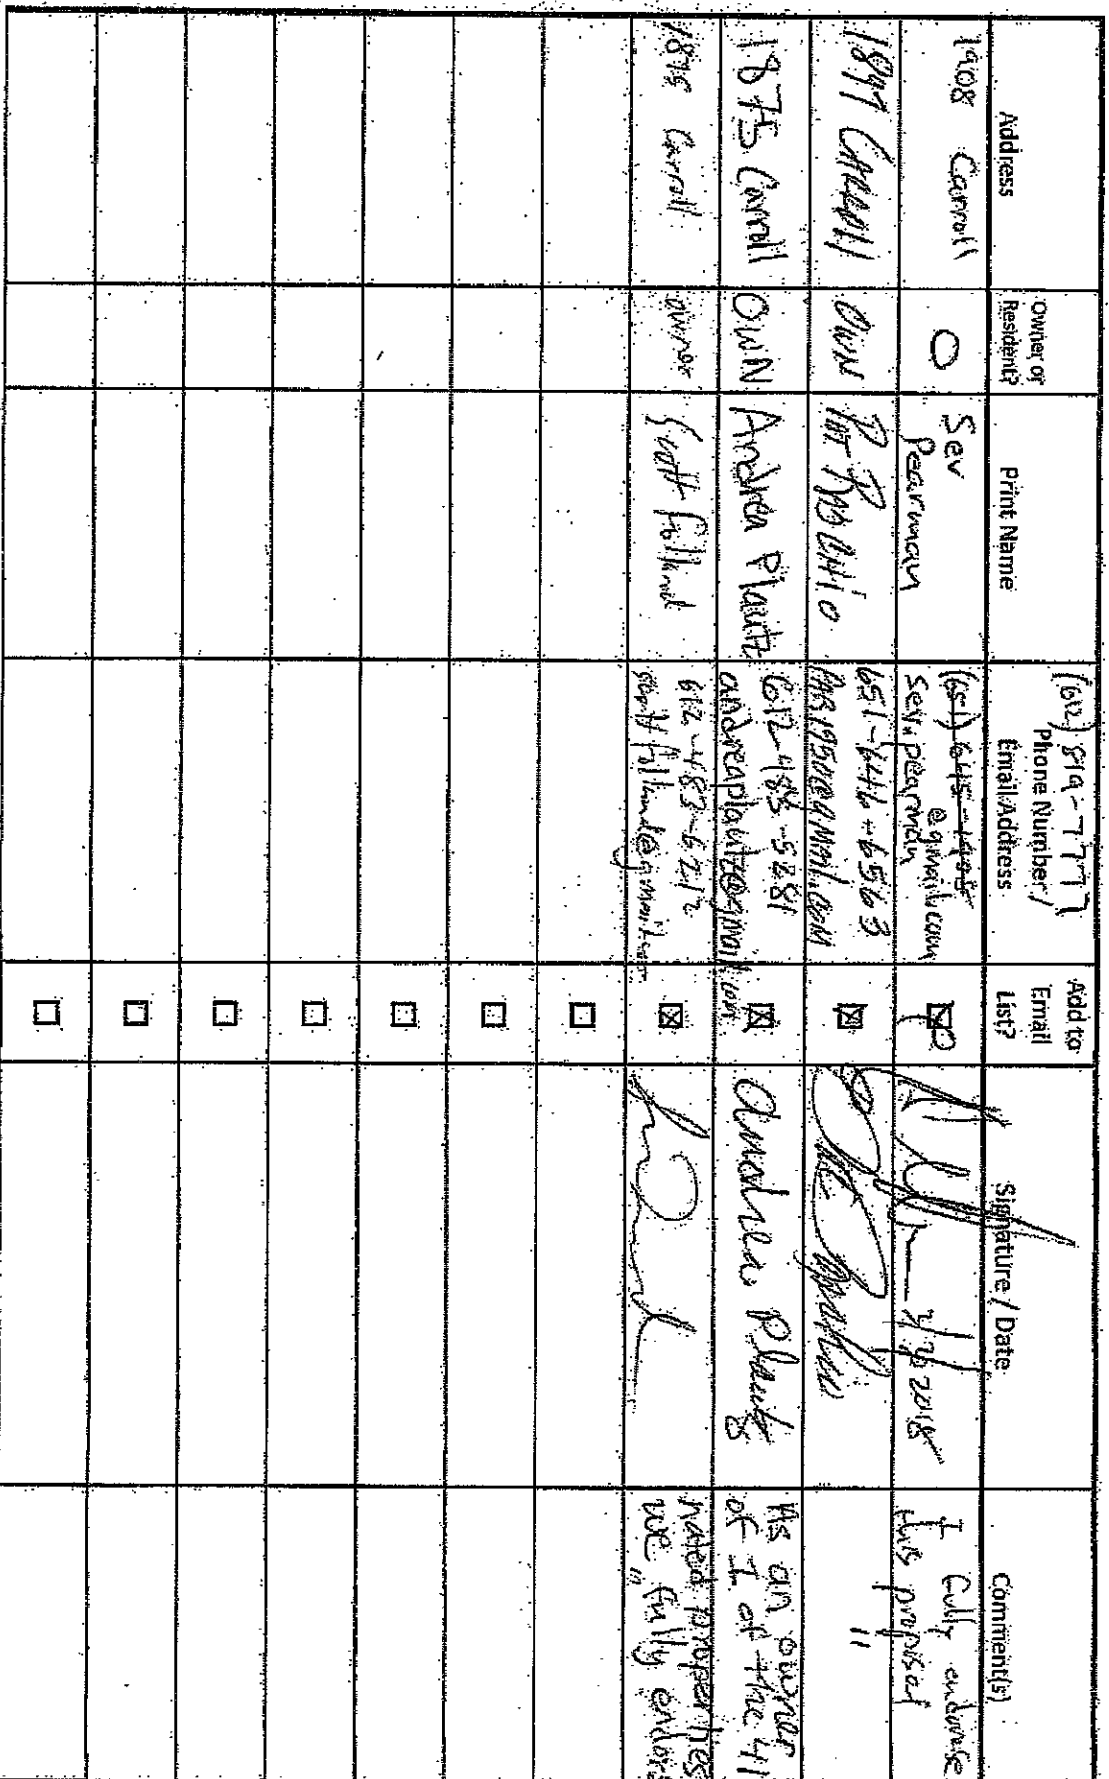 Address
Owner or
Resident?
Print Name
Phone Number /
Email Address
Add to
Email
List?
Signature / Date
Comment(s)
1908 Carroll
O
Sev
Pearman
(612) 819-7777
(651) 645-1995
sev.pearman
@gmail.com
2018
I fully endorse
this proposal
1897 Carroll
OWN
651-646-6563
PAB1950@gmail.com
"
1875 Carroll
OWN
Andrea Plautz
612-485-5281
andreaplautz@gmail.com
Andrea Plautz
As an owner
of 1 of the 41
nated properties
we fully endor
1875 Carroll
owner
Scott Folland
612-483-6212
scottfolland@gmail.com
"